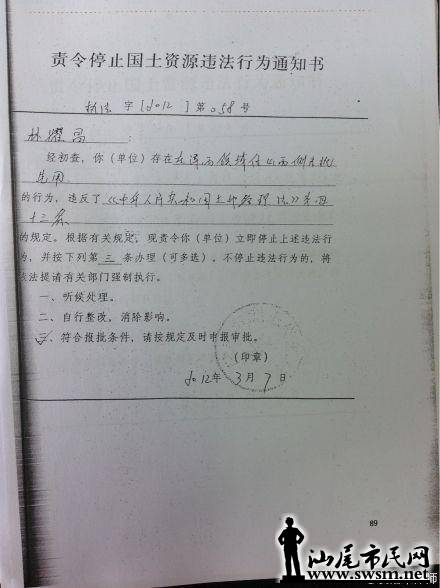 责令停止国土资源违法行为通知书
执法 字[2012]第058号
林耀昌:
经初查,你(单位)存在在
的行为,违反了《中华人民共和国土地管理法》第四
十三条
的规定。根据有关规定,现责令你(单位)立即停止上述违法行
为,并按下列第三条办理(可多选)。不停止违法行为的,将
依法提请有关部门强制执行。
一、听候处理。
二、自行整改,消除影响。
三、符合报批条件,请按规定及时申报审批。
(印章)
2012年3月7日
89
汕尾市民网
www.swsm.net